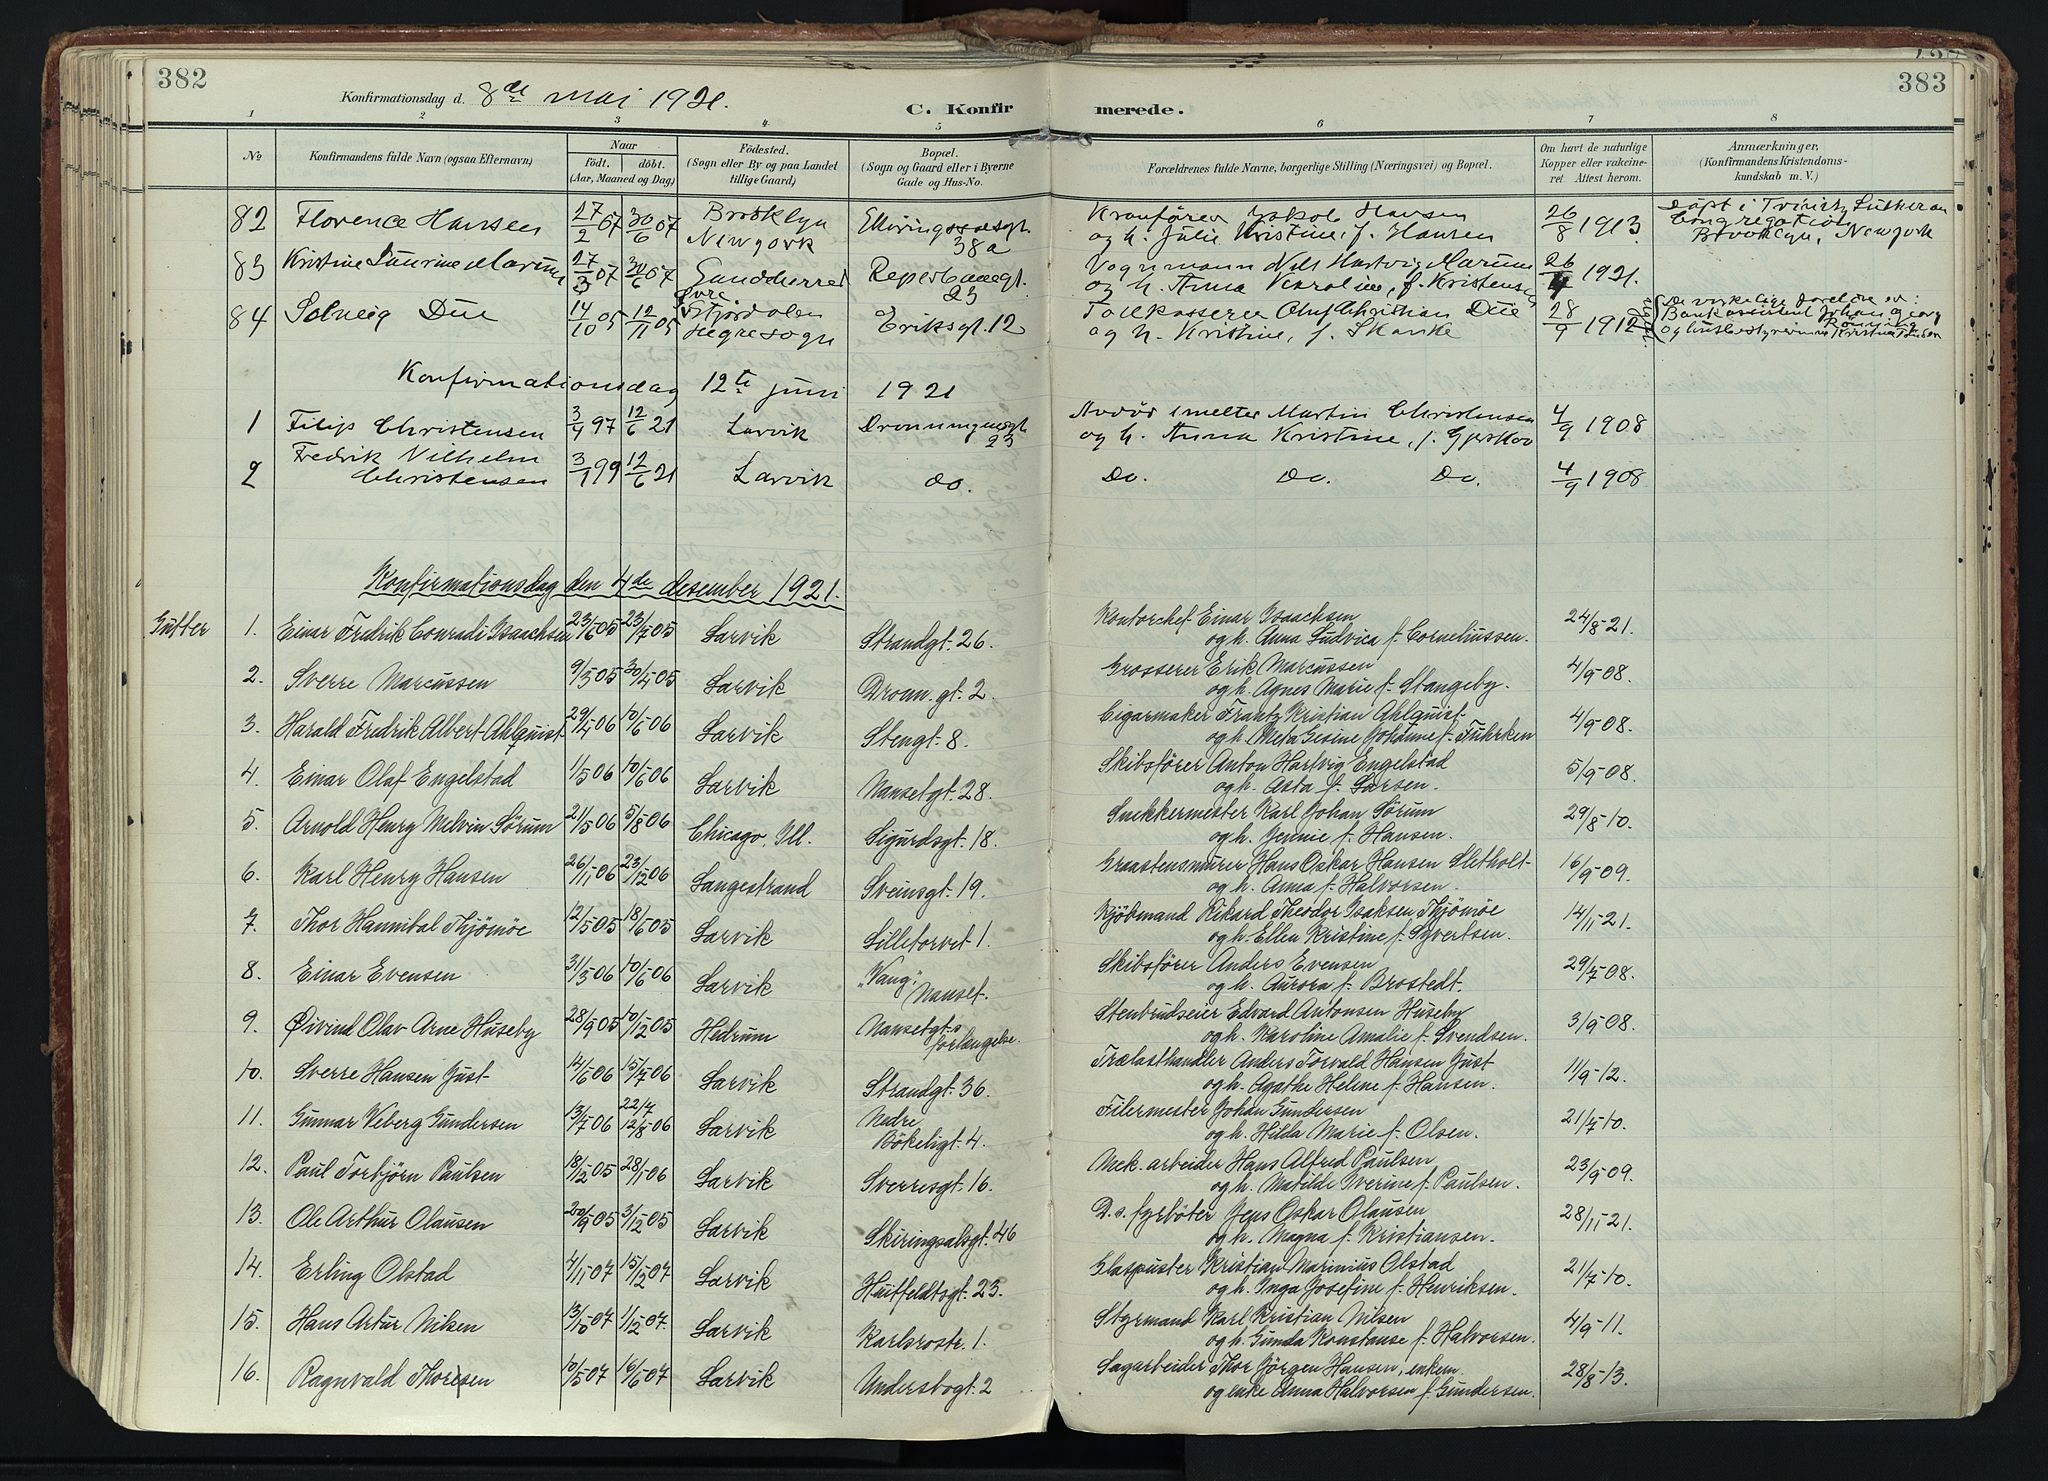 382
383
Konfirmationsdag d. 8de mai 1921.
C. Konfirmerede.
1 2 3 4 5 6 7 8
No
Konfirmandens fulde Navn (ogsaa Efternavn)
Naar
født. døbt.
(Aar, Maaned og Dag)
Fødested.
(Sogn eller By og paa Landet
tillige Gaard)
Bopæl.
(Sogn og Gaard eller i Byerne
Gade og Hus-No.
Forældrenes fulde Navne, borgerlige Stilling (Næringsvei) og Bopæl.
Om havt de naturlige
Kopper eller vakcine-
ret. Attest herom.
Anmærkninger.
(Konfirmandens Kristendoms-
kundskab m. V.)
82 Florence Hansen 27/2 07 30/6 07 Brooklyn Newyork 38a Kranfører Jakob Hansen og h. Julie Kristine, f. Hansen 26/8 1913. Døpt i Trinity Lutheran Congregation Brooklyn, Newyork
83 Kristine Laurine Marum 27/3 07 30/6 07 Sandeherred Reperbanegt. 23 Vognmann Nils Hartvig Marum og h. Anna Karoline, f. Kristensen 26/4 1921.
84 Solveig Due 14/10 05 12/11 05 Øvre Stjørdalen Hegre sogn Eriksgt. 12 Toldkasserer Oluf Christian Due og h. Kristine, f. Skanke 28/9 1912 De virkelige foreldre er: Bankassistent Johan Georg Rønning og husbestyrerinne Kristine
Konfirmationsdag 12te juni 1921
1 Filip Christensen 3/4 97 12/6 21 Larvik Dronningensgt 23 Avdød smelter Martin Christensen og h. Anna Kristine, f. Gjerskov 4/9 1908
2 Fredrik Vilhelm Christensen 3/1 99 12/6 21 Larvik do. Do. Do. Do. 4/9 1908
Konfirmationsdag den 4de desember 1921.
Gutter 1. Einar Fredrik Conradi Isaachsen 23/6 05 23/7 05 Larvik Strandgt. 26. Kontorchef Einar Isaachsen og h. Anna Ludvica f. Corneliussen. 24/8-21.
2. Sverre Marcussen 9/3 05 30/4 05 Larvik Dronn. gt. 2. Grosserer Erik Marcussen og h. Agnes Marie f. Stangeby. 4/9-08.
3. Harald Fredrik Albert Ahlquist 29/4 06 10/6 06 Larvik Stengt. 8. Cigarmaker Frantz Kristian Ahlquist og h. Meta Gesine Johanne f. Fuhrken 4/9-08.
4. Einar Olaf Engelstad 1/5 06 10/6 06 Larvik Nansetgt. 28. Skibsfører Anton Hartvig Engelstad og h. Asta f. Larsen. 5/9-08.
5. Arnold Henry Melvin Sørum 21/5 06 5/8 06 Chicago, Ill. Sigurdsgt. 18. Snekkermester Karl Johan Sørum og h. Jennie f. Hansen. 29/8-10.
6. Karl Henry Hansen 26/11 06 23/12 06 Langestrand Sveinsgt. 19. Graastensmurer Hans Oskar Hansen Sletholt og h. Anna f. Halvorsen. 16/9-09.
7. Thor Hannibal Thjømøe 12/5 05 18/6 05 Larvik Lilletorvet 1. Kjøbmand Rikard Theodor Isaksen Thjømøe og h. Ellen Kristine f. Syvertsen. 14/11-21.
8. Einar Evensen 31/3 06 10/6 06 Larvik "Vang", Nanset. Skibsfører Anders Evensen og h. Aurora f. Brostedt. 29/7-08.
9. Øivind Olav Arne Huseby 28/9 05 10/12 05 Hedrum Nansetgt.s forlængelse. Stenbrudseier Edvard Antonsen Huseby og h. Karoline Amalie f. Svendsen. 3/9-08.
10. Sverre Hansen Just 14/6 06 15/7 06 Larvik Strandgt. 36. Trælasthandler Anders Torvald Hansen Just og h. Agathe Helene f. Hansen. 11/9-12.
11. Gunnar Veberg Gundersen 13/7 06 22/7 12/8 06 Larvik Nedre Bøkeligt. 4. Filermester Johan Gundersen og h. Hilda Marie f. Olsen. 21/7-10.
12. Paul Torbjørn Paulsen 18/12 05 28/1 06 Larvik Sverresgt. 16. Mek. arbeider Hans Alfred Paulsen og h. Matilde Iverine f. Paulsen. 23/9-09.
13. Ole Arthur Olausen 20/9 05 3/12 05 Larvik Skiringsalsgt. 46 D.s. fyrbøter Jens Oskar Olausen og h. Magna f. Kristiansen. 28/11-21.
14. Erling Olstad 4/11 07 15/12 07 Larvik Huitfeldtsgt. 23. Glaspuster Kristian Marinius Olstad og h. Inga Josefine f. Henriksen. 21/7-10.
15. Hans Artur Nilsen 13/10 07 1/12 07. Larvik Karlsrostr. 1. Styrmand Karl Kristian Nilsen og h. Gunda Konstanse f. Halvorsen. 4/9-11.
16. Ragnvald Thoresen 10/5 07 16/6 07 Larvik Undersbogt. 2 Sagarbeider Thor Jørgen Hansen, enkem. og enke Anna Halvorsen f. Gundersen. 28/8-13.